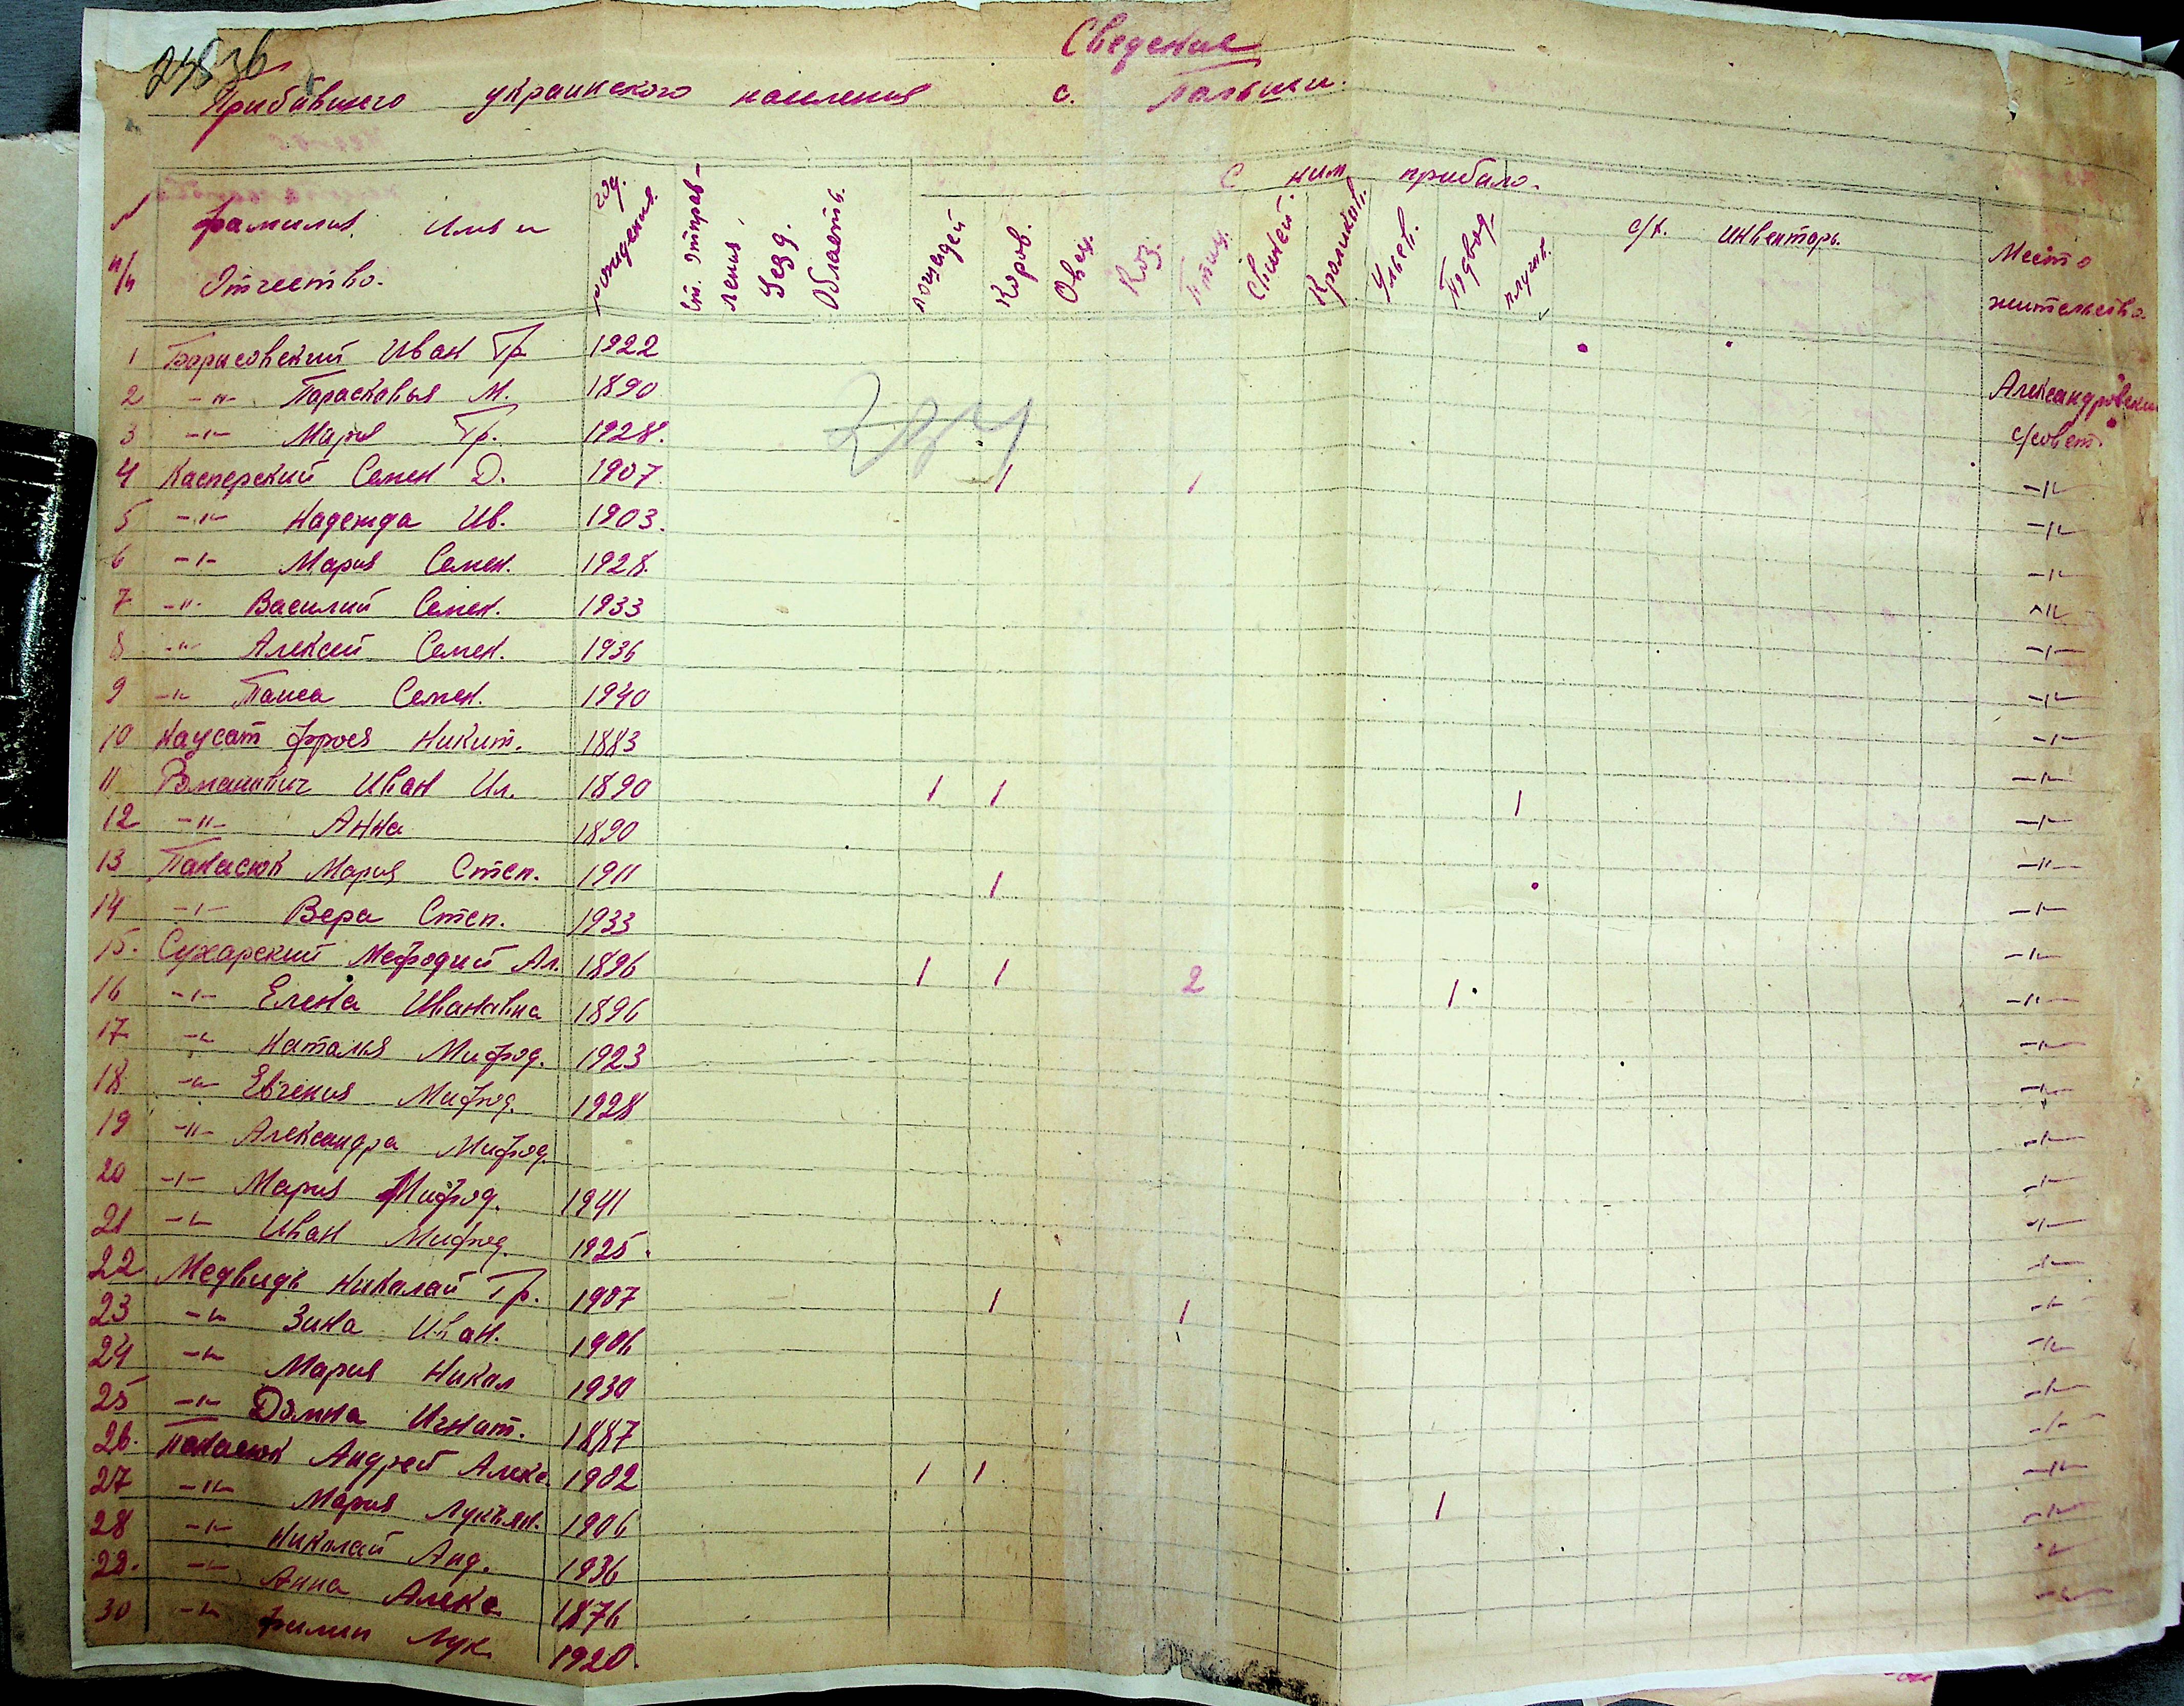 Сведение
Прибывшего украинского населения с. Польши.
№ п/п Фамилия Имя и Отчество. год рождения. Ст. Отправления Уезд. Область. С ним прибыло. Место жительство
лошадей Коров. Овец. Коз. Птиц. Свиней. Кроликов. Ульев. Подвод. плугов. с/х. инвентарь.
1 Борисовский Иван Гр. 1922
2 -"- Парасковья М. 1890 Александровский
3 -"- Мария Гр. 1928. с/совет.
4 Касперский Семен Д. 1907 1 1 -"-
5 -"- Надежда Ив. 1903. -"-
6 -"- Мария Семен. 1928. -"-
7 -"- Василий Семен. 1933 -"-
8 -"- Алексей Семен. 1936 -"-
9 -"- Таиса Семен. 1940 -"-
10 Фрося Никит. 1883 -"-
11 Иван Ил. 1890 1 1 1 -"-
12 -"- Анна 1890 -"-
13 Панасюк Мария Степ. 1911 1 -"-
14 -"- Вера Степ. 1933 -"-
15. Сухарский Мефодий Ал. 1896 1 1 2 -"-
16 -"- Елена Ивановна 1896 1 -"-
17 -"- Наталия Мифод. 1923 -"-
18 -"- Евгения Мифод. 1928 -"-
19 -"- Александра Мифод. -"-
20 -"- Мария Мифод. 1941 -"-
21 -"- Иван Мифод. 1925. -"-
22 Медвидь Николай Гр. 1907 1 1 -"-
23 -"- Зина Иван. 1906 -"-
24 -"- Мария Никол 1930 -"-
25 -"- Домна Игнат. 1887 -"-
26. Панасюк Андрей Алекс. 1902 1 1 -"-
27 -"- Мария Лукьян. 1906 1 -"-
28 -"- Николай Анд. 1936 -"-
29. -"- Анна Алекс 1876 -"-
30 -"- Филип Лук. 1920.